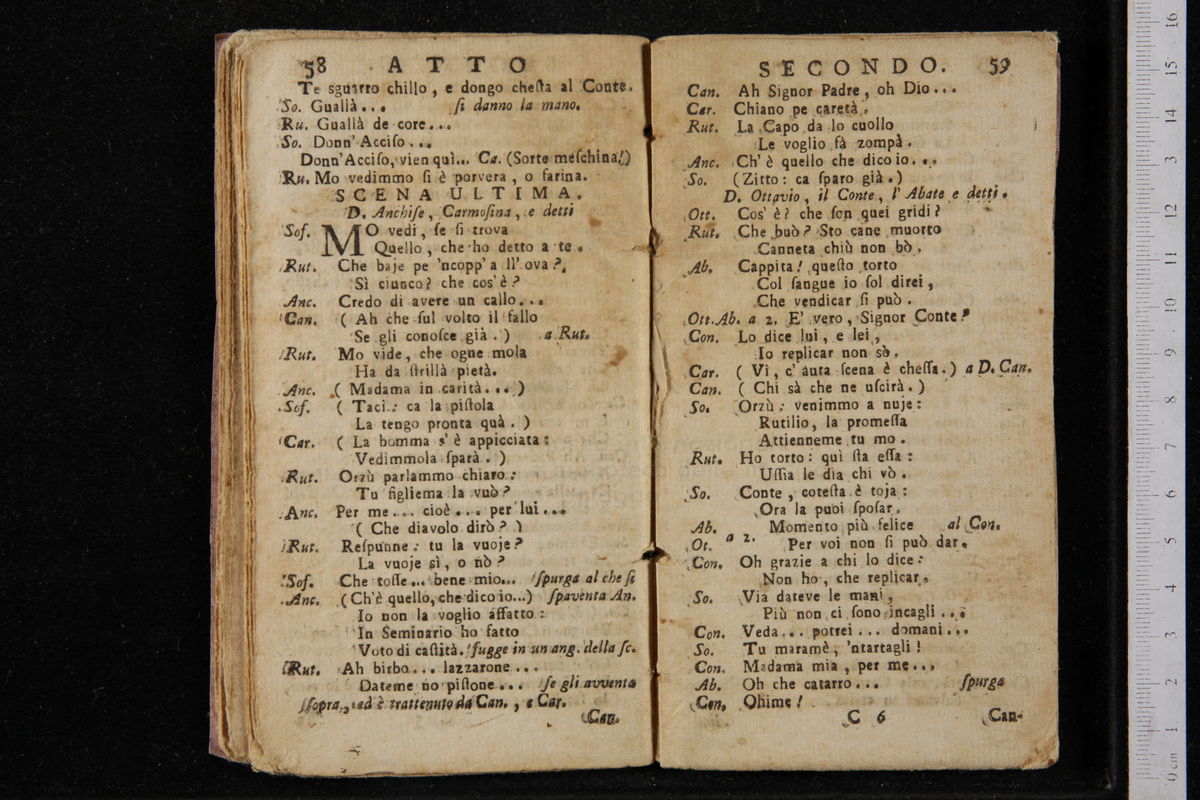 58 ATTO
Te sguarro chillo, e dongo chesta al Conte.
So. Guallà... si danno la mano.
Ru. Guallà de core...
So. Donn' Acciso...
Donn' Acciso, vien quì... Ca. (Sorte meschina!)
Ru. Mo vedimmo si è porvera, o farina.
SCENA ULTIMA.
D. Anchise, Carmosina, e detti
Sof. MO vedi, se si trova
Quello, che ho detto a te.
Rut. Che baje pe 'ncopp' a ll' ova?
Sì ciunco? che cos' è?
Anc. Credo di avere un callo...
Can. (Ah che sul volto il fallo
Se gli conosce già.) a Rut.
Rut. Mo vide, che ogne mola
Ha da strillà pietà.
Anc. (Madama in carità...)
Sof. (Taci: ca la pistola
La tengo pronta quà.)
Car. (La bomma s' è appicciata:
Vedimmola sparà.)
Rut. Orzù parlammo chiaro:
Tu figliema la vuò?
Anc. Per me... cioè... per lui...
(Che diavolo dirò?)
Rut. Respunne: tu la vuoje?
La vuoje sì, o nò?
Sof. Che tosse... bene mio... spurga al che si
Anc. (Ch'è quello, che dico io...) spaventa An.
Io non la voglio affatto:
In Seminario ho fatto
Voto di castità. fugge in un ang. della sc.
Rut. Ah birbo... lazzarone...
Dateme no pistone... se gli avventa
sopra, ed è trattenuto da Can., e Car.
Can.
SECONDO. 59
Can. Ah Signor Padre, oh Dio...
Car. Chiano pe caretà.
Rut. La Capo da lo cuollo
Le voglio fà zompà.
Anc. Ch' è quello che dico io...
So. (Zitto: ca sparo già.)
D. Ottavio, il Conte, l' Abate e detti.
Ott. Cos' è? che son quei gridi?
Rut. Che buò? Sto cane muorto
Canneta chiù non bò.
Ab. Cappita! questo torto
Col sangue io sol direi,
Che vendicar si può.
Ott. Ab. a 2. E' vero, Signor Conte?
Con. Lo dice lui, e lei,
Io replicar non sò.
Car. (Vi, c' auta scena è chessa.) a D. Can.
Can. (Chi sà che ne uscirà.)
So. Orzù: venimmo a nuje:
Rutilio, la promessa
Attienneme tu mo.
Rut. Ho torto: quì sta essa:
Ussia le dia chi vò.
So. Conte, cotesta è toja:
Ora la puoi sposar.
Ab. Momento più felice al Con.
Ot. a 2. Per voi non si può dar.
Con. Oh grazie a chi lo dice:
Non ho, che replicar.
So. Via dateve le mani,
Più non ci sono incagli...
Con. Veda... potrei... domani...
So. Tu maramè, 'ntartagli!
Con. Madama mia, per me...
Ab. Oh che catarro... spurga
Con. Ohime!
C 6 Can-